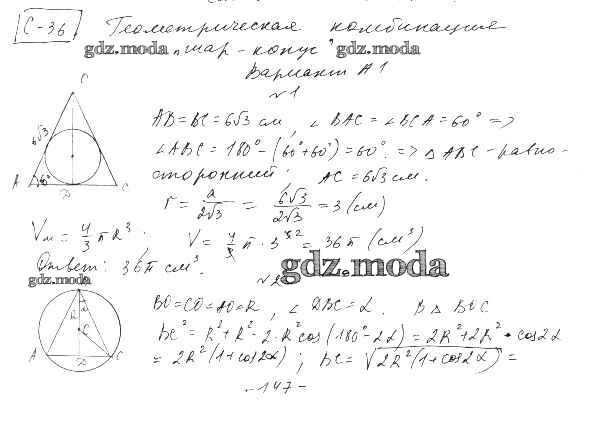 С-36. Геометрическая комбинация
gdz.moda „шар - конус" gdz.moda
Вариант А1
№1
B
6√3
A 60° C
D
AB = BC = 6√3 см, ∠BAC = ∠BCA = 60° =>
∠ABC = 180° - (60° + 60°) = 60°. => △ABC - равно-
сторонний; AC = 6√3 см.
r = a/2√3 = 6√3/2√3 = 3 (см)
Vш = 4/3 π R³; V = 4/3 π · 3³ = 36π (см³)
Ответ: 36π см³.
gdz.moda
gdz.moda
№2
R
A C
D
BO = CO = AO = R, ∠DBC = α. В △BOC
BC² = R² + R² - 2·R² cos(180° - 2α) = 2R² + 2R² · cos2α
= 2R²(1 + cos2α); BC = √2R²(1 + cos2α) =
- 147 -